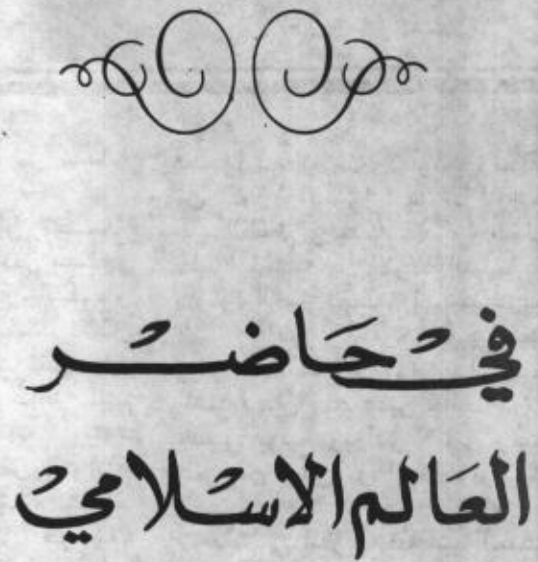 في حاضر
العالم الاسلامي